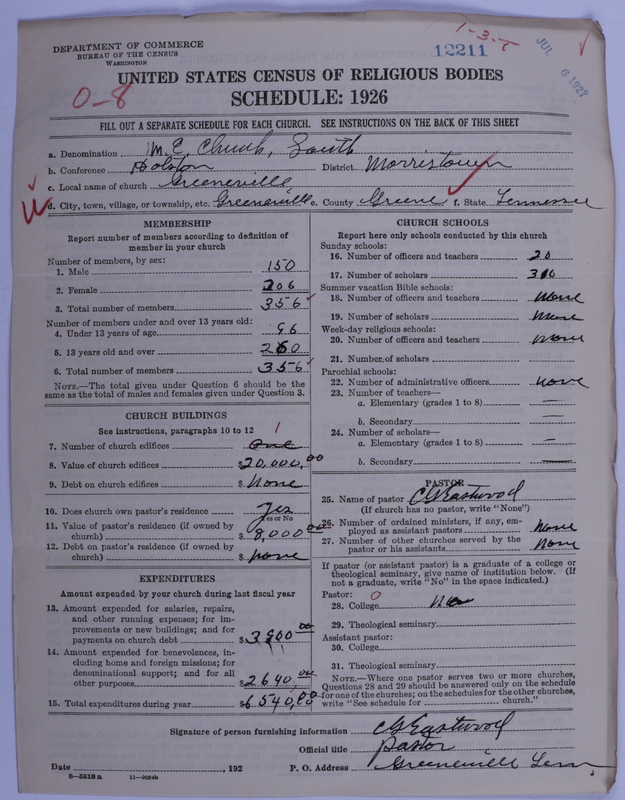 DEPARTMENT OF COMMERCE
BUREAU OF THE CENSUS
WASHINGTON
12211
JUL 6 1927
UNITED STATES CENSUS OF RELIGIOUS BODIES
0-8
SCHEDULE: 1926
FILL OUT A SEPARATE SCHEDULE FOR EACH CHURCH. SEE INSTRUCTIONS ON THE BACK OF THIS SHEET
a. Denomination M. E. Church, South
b. Conference Holston District Morristown
c. Local name of church Greeneville
d. City, town, village, or township, etc. Greeneville e. County Greene f. State Tennessee
MEMBERSHIP
Report number of members according to definition of
member in your church
Number of members, by sex:
1. Male 150
2. Female 206
3. Total number of members 356
Number of members under and over 13 years old:
4. Under 13 years of age 96
5. 13 years old and over 260
6. Total number of members 356
NOTE.—The total given under Question 6 should be the
same as the total of males and females given under Question 3.
CHURCH BUILDINGS
See instructions, paragraphs 10 to 12
7. Number of church edifices One 1
8. Value of church edifices $20,000.00
9. Debt on church edifices $ None
10. Does church own pastor's residence Yes
Yes or No
11. Value of pastor's residence (if owned by
church) $8,000.00
12. Debt on pastor's residence (if owned by
church) $ none
EXPENDITURES
Amount expended by your church during last fiscal year
13. Amount expended for salaries, repairs,
and other running expenses; for im-
provements or new buildings; and for
payments on church debt $3,900.00
14. Amount expended for benevolences, in-
cluding home and foreign missions; for
denominational support; and for all
other purposes $2640.00
15. Total expenditures during year $6540.00
CHURCH SCHOOLS
Report here only schools conducted by this church
Sunday schools:
16. Number of officers and teachers 20
17. Number of scholars 310
Summer vacation Bible schools:
18. Number of officers and teachers None
19. Number of scholars None
Week-day religious schools:
20. Number of officers and teachers None
21. Number of scholars
Parochial schools:
22. Number of administrative officers None
23. Number of teachers—
a. Elementary (grades 1 to 8) —
b. Secondary —
24. Number of scholars—
a. Elementary (grades 1 to 8) —
b. Secondary —
PASTOR
25. Name of pastor C G Eastwood
(If church has no pastor, write "None")
26. Number of ordained ministers, if any, em-
ployed as assistant pastors None
27. Number of other churches served by the
pastor or his assistants None
If pastor (or assistant pastor) is a graduate of a college or
theological seminary, give name of institution below. (If
not a graduate, write "No" in the space indicated.)
Pastor: 0
28. College No
29. Theological seminary
Assistant pastor:
30. College
31. Theological seminary
NOTE.—Where one pastor serves two or more churches,
Questions 28 and 29 should be answered only on the schedule
for one of the churches; on the schedules for the other churches,
write "See schedule for church."
Signature of person furnishing information C G Eastwood
Official title Pastor
Date , 192 P. O. Address Greeneville Tenn
8—5518 a 11—9264b